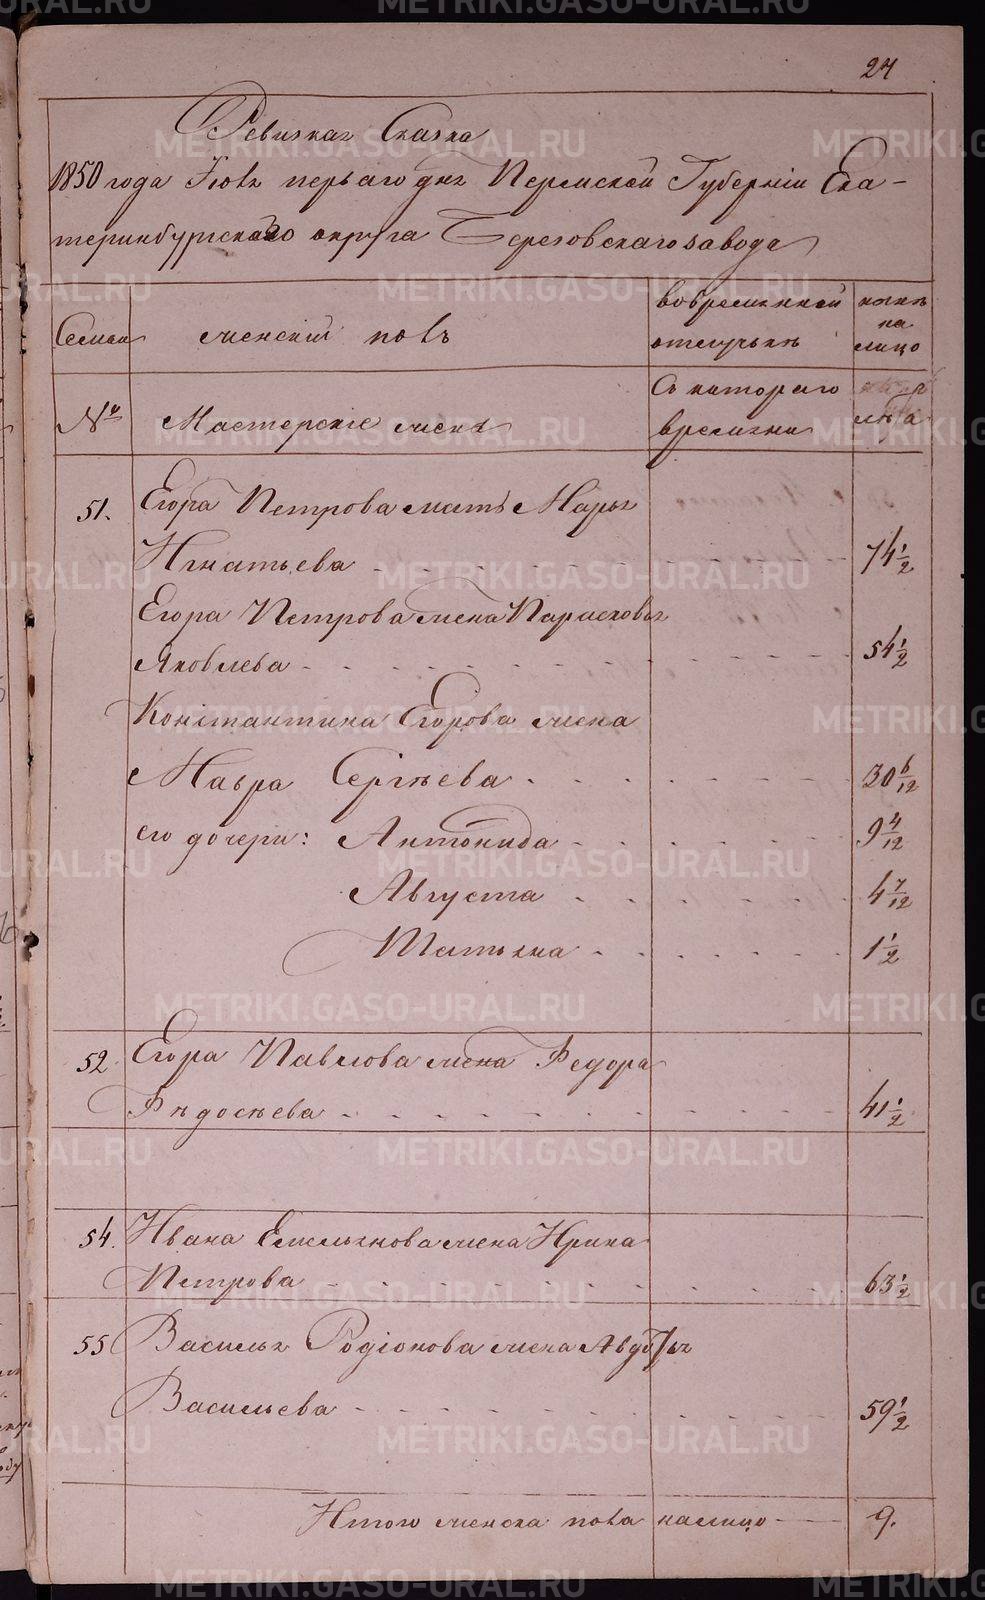 27
Ревизкая Сказка
1850 года Іюля перваго дня Пермской Губерніи Ека-
теринбургскаго округа Березовскаго завода
Семьи
женскій полъ
вовременной
отлучькѣ
нынѣ
на
лицо
№
Мастерскіе жены
Съ котораго
времѣни
лѣта
51.
Егора Петрова мать Марья
Игнатьева
74 1/2
Егора Петрова жена Парасковья
Яковлева
54 1/2
Константина Егорова жена
Мавра Сергѣева
30 6/12
его дочери: Антонида
9 4/12
Августа
4 7/12
Татьяна
1 1/2
52
Егора Павлова жена Федора
Фѣдосѣева
41 1/2
54.
Ивана Емельянова жена Ирина
Петрова
63 1/2
55
Василья Родіонова жена Авдотья
Васильева
59 1/2
Итого женска пола налицо
9.
METRIKI.GASO-URAL.RU